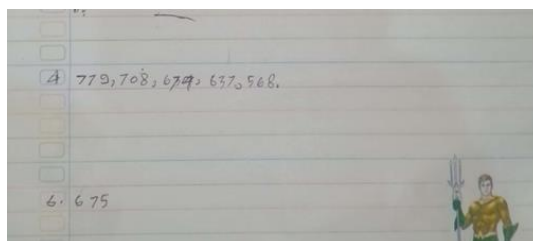 4 779, 708, 679, 637, 568.
6. 675